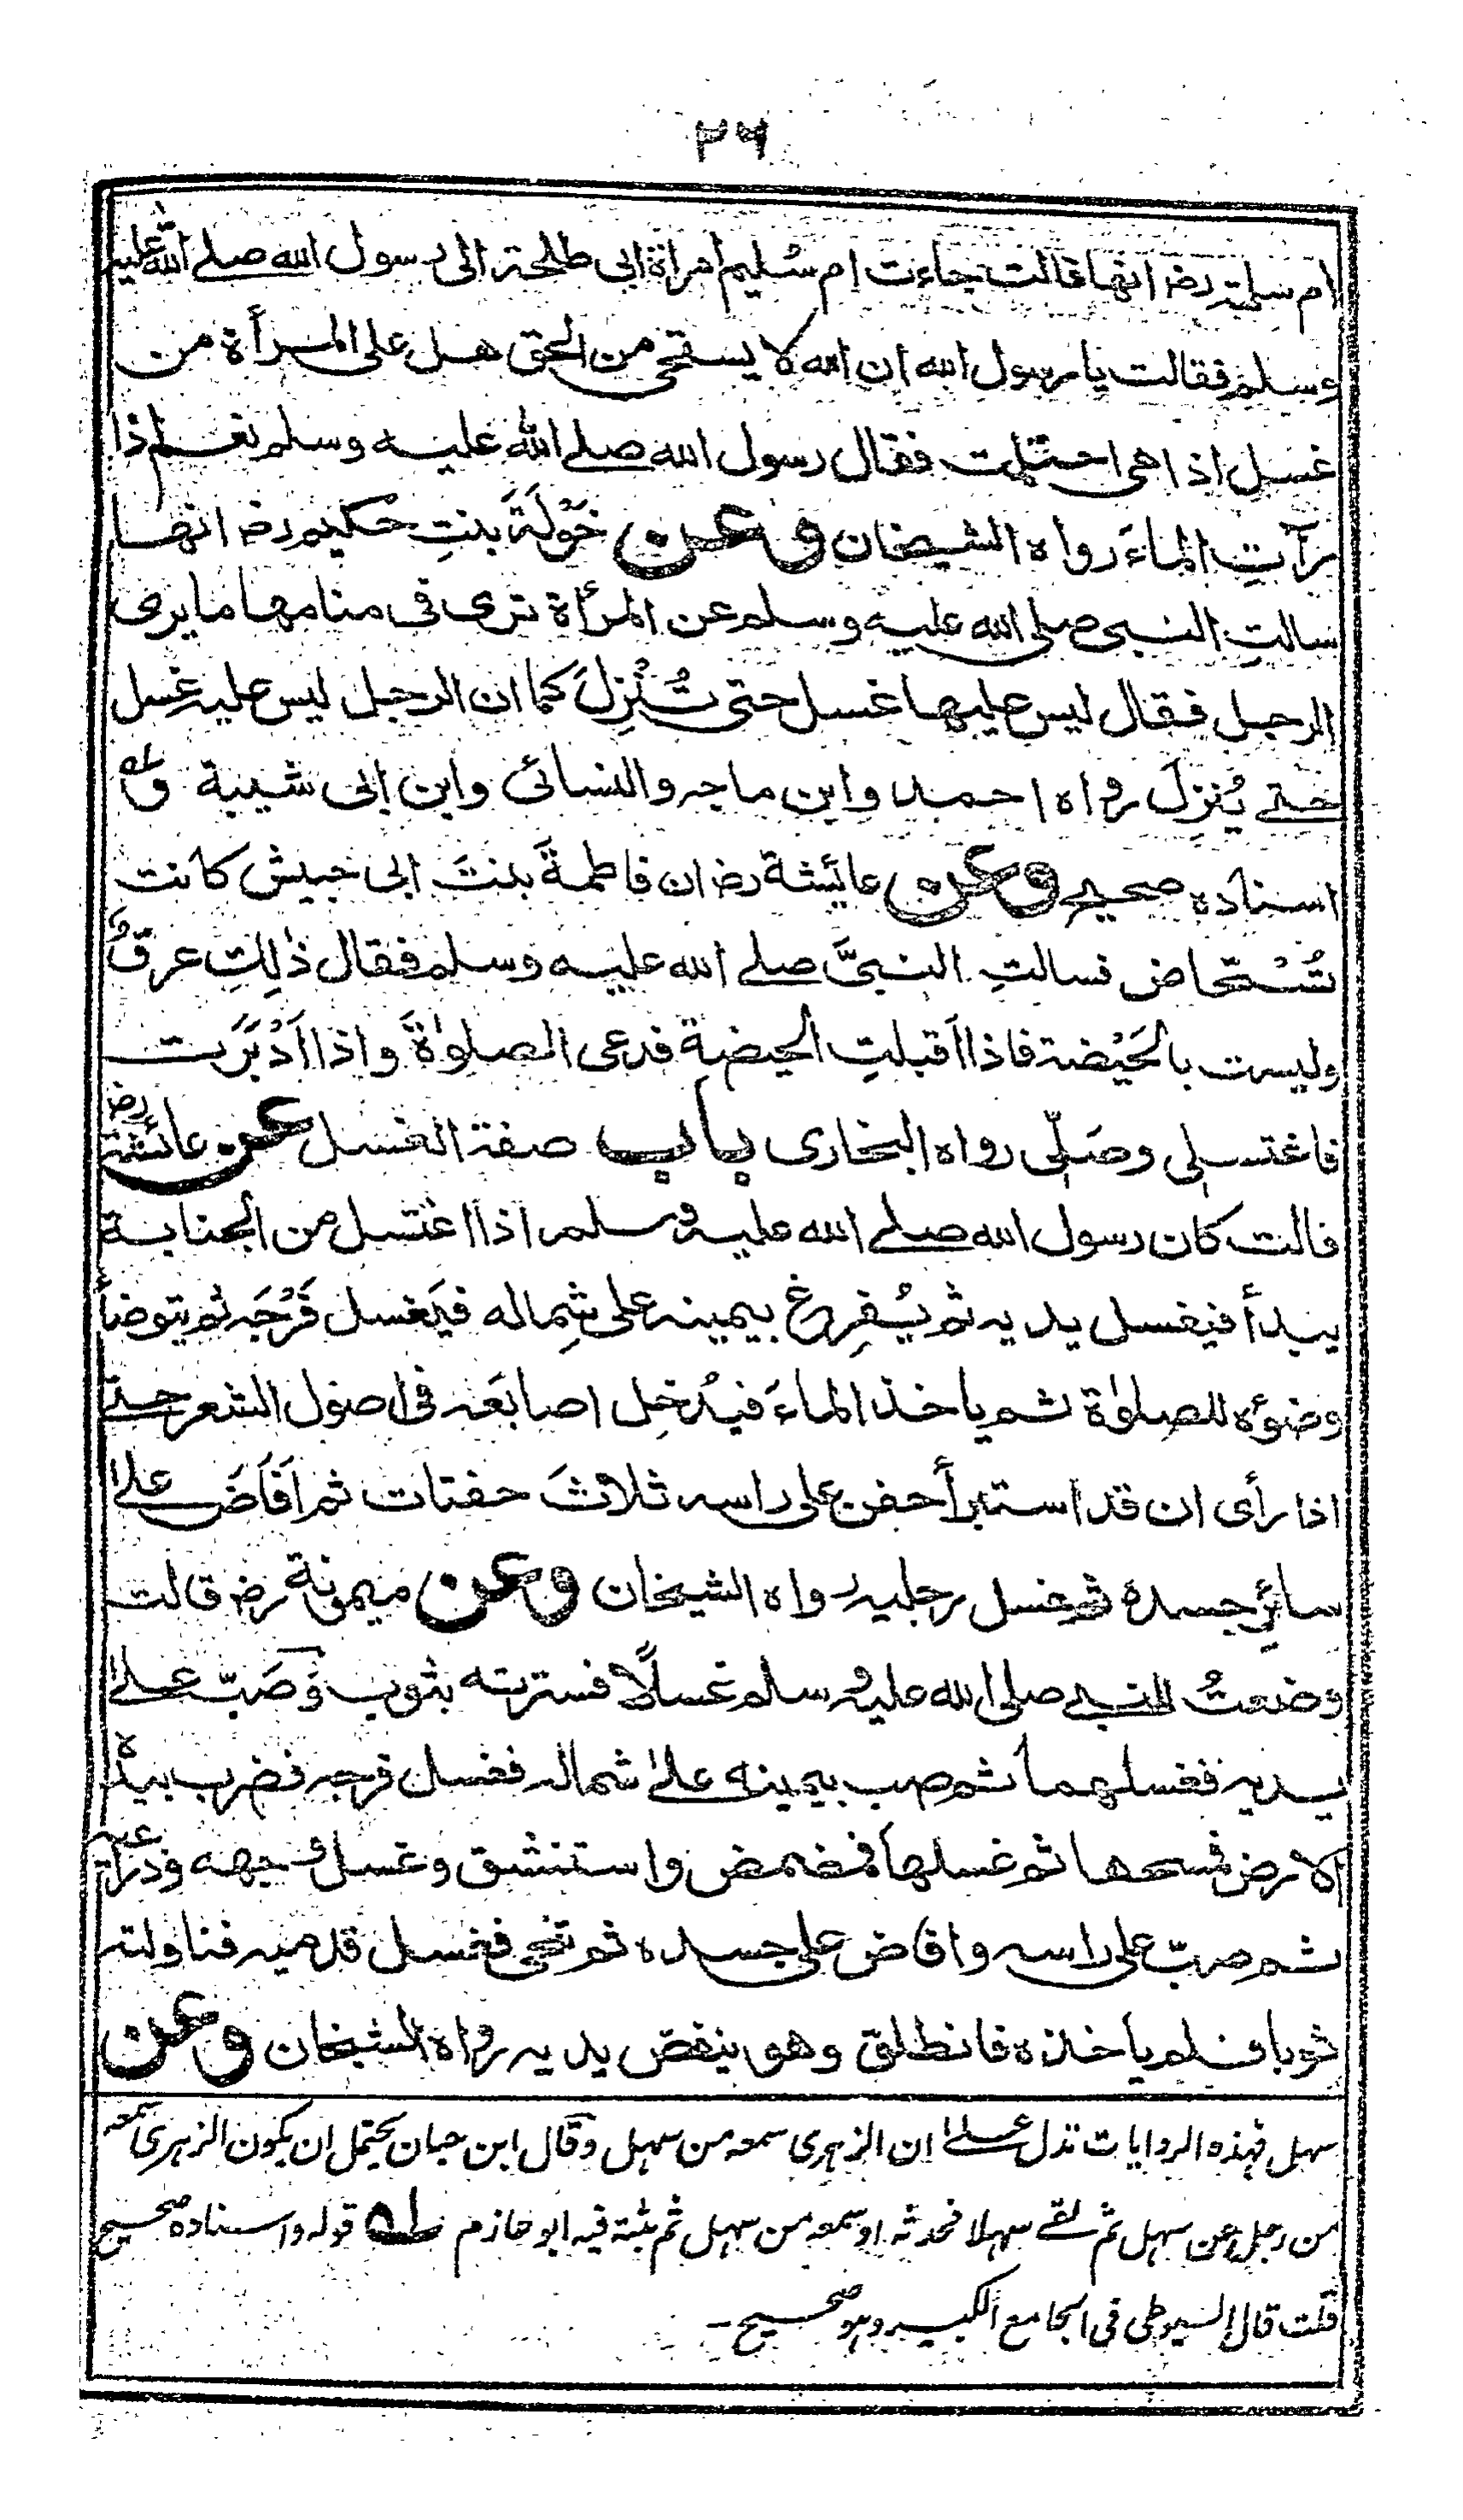 ٢٦
ام سلمة رضـ انها قالت جاءت ام سُليم امرأة ابى طلحة الى رسول الله صلے الله عليه
وسلم فقالت يا رسول الله ان الله لا يستحى من الحق هل على المرأة من
غسل اذا هى احتلمت فقال رسول الله صلے الله عليه وسلم نعم اذا
رآتِ الماءَ رواه الشيخان وعن خَوْلَةَ بنتِ حكيم رضـ انها
سالتِ النبى صلى الله عليه وسلم عن المرأة ترى فى منامها ما يرى
الرجل فقال ليس عليها غسل حتى تُنْزِلَ كما ان الرجل ليس عليه غسل
حتے يُنزِلَ رواه احمد وابن ماجه والنسائى وابن ابى شيبة و لـه
اسناده صحيح وعن عائشة رضـ ان فاطمةَ بنتَ ابى حبيش كانت
تُسْتحاض فسالتِ النبىَّ صلے الله عليه وسلم فقال ذٰلِكِ عرقٌ
وليست بالحَيْضة فاذا اقبلتِ الحيضةِ فدعى الصلوٰةَ واذا اَدْبَرَت
فاغتسلى وصَلّى رواه البخارى باب صفة الغسل عن عائشة رضـ
قالت كان رسول الله صلے الله عليه وسلم اذا اغتسل من الجنابة
يبدأ فيغسل يديه ثم يُفرِغ بيمينه على شِماله فيَغسل فَرْجَه ثم يتوضأ
وضوءه للصلوٰة ثم ياخذ الماءَ فيُدخِل اصابعَه فى اصول الشعر حتے
اذا رأى ان قد استبرأ حفن على راسه ثلاثَ حفنات ثم اَفَاضَ علےٰ
سائرِ جسده ثم غسل رجليه رواه الشيخان وعن ميمونة رضـ قالت
وضعتُ للنبے صلى الله عليه وسلم غسلًا فسترته بثوب وَصَبّ علےٰ
يديه فغسلهما ثم صب بيمينه علےٰ شماله فغسل فرجه فضرب بيده
الارض فمسحها ثم غسلها فمضمض واستنشق وغسل وجهه وذراعيه
ثم صبّ على راسه وافاض على جسده ثم تنحى فغسل قدميه فناولته
ثوبا فلم ياخذه فانطلق وهو ينفض يديه رواه الشيخان وعن
سهل فهذه الروايات تدل علےٰ ان الزهرى سمعه من سهل وقال ابن حبان يحتمل ان يكون الزهرى سمعه
من رجل عن سهل ثم لقے سهلا فحدثه او سمعه من سهل ثم ثبته فيه ابو حازم لـه قوله واسناده صحيح
قلت قال السيوطى فى الجامع الكبير وهو صحيح -